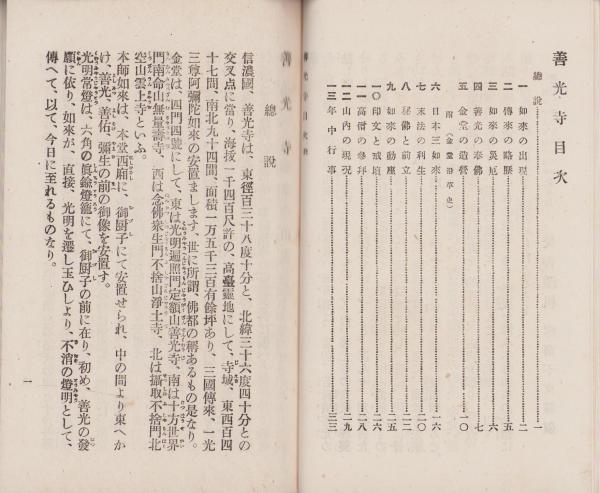 善光寺目次
總說…………一
一 如來の出現…………二
二 傳來の略歷…………五
三 如來の災厄…………六
四 善光の奉佛…………七
五 金堂の造營…………一〇
附(金堂沿革史)
六 日本三如來…………一六
七 末法の利生…………二〇
八 秘佛と前立…………二二
九 如來の動座…………二五
一〇 印文と戒壇…………二六
一一 高僧の參拜…………二八
一二 山內の現況…………二九
一三 年中行事…………三三
善光寺
總說
信濃國、善光寺は、東徑百三十八度十分と、北緯三十六度四十分との
交叉点に當り、海拔一千四百尺許の、高臺靈地にして、寺域、東西四百
十七間、南北九十四間、面積一万五千三百有餘坪あり、三國傳來、一光
三尊阿彌陀如來の安置まします、世に所謂、佛都の稱あるもの是なり。
金堂は、四門四號にして、東は光明遍照門定額山善光寺、南は十方世界
門南命山無量壽寺、西は念佛衆生門不捨山淨土寺、北は攝取不捨門北
空山雲上寺といふ。
本師如來は、本堂西廂に、御厨子にて安置せられ、中の間より東へか
け、善光、善佑、彌生の前の御像を安置す。
光明常燈は、六角の眞鍮燈籠にて、御厨子の前に在り、初め、善光の發
願に依り、如來が、直接、光明を遷し玉ひしより、不消の燈明として、
傳へて、以て、今日に至れるものなり。
一